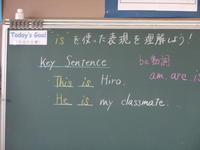 Today's Goal
"is"を使った表現を理解しよう!
Key Sentence
be動詞
am, are is
This is Hiro.
He is my classmate.